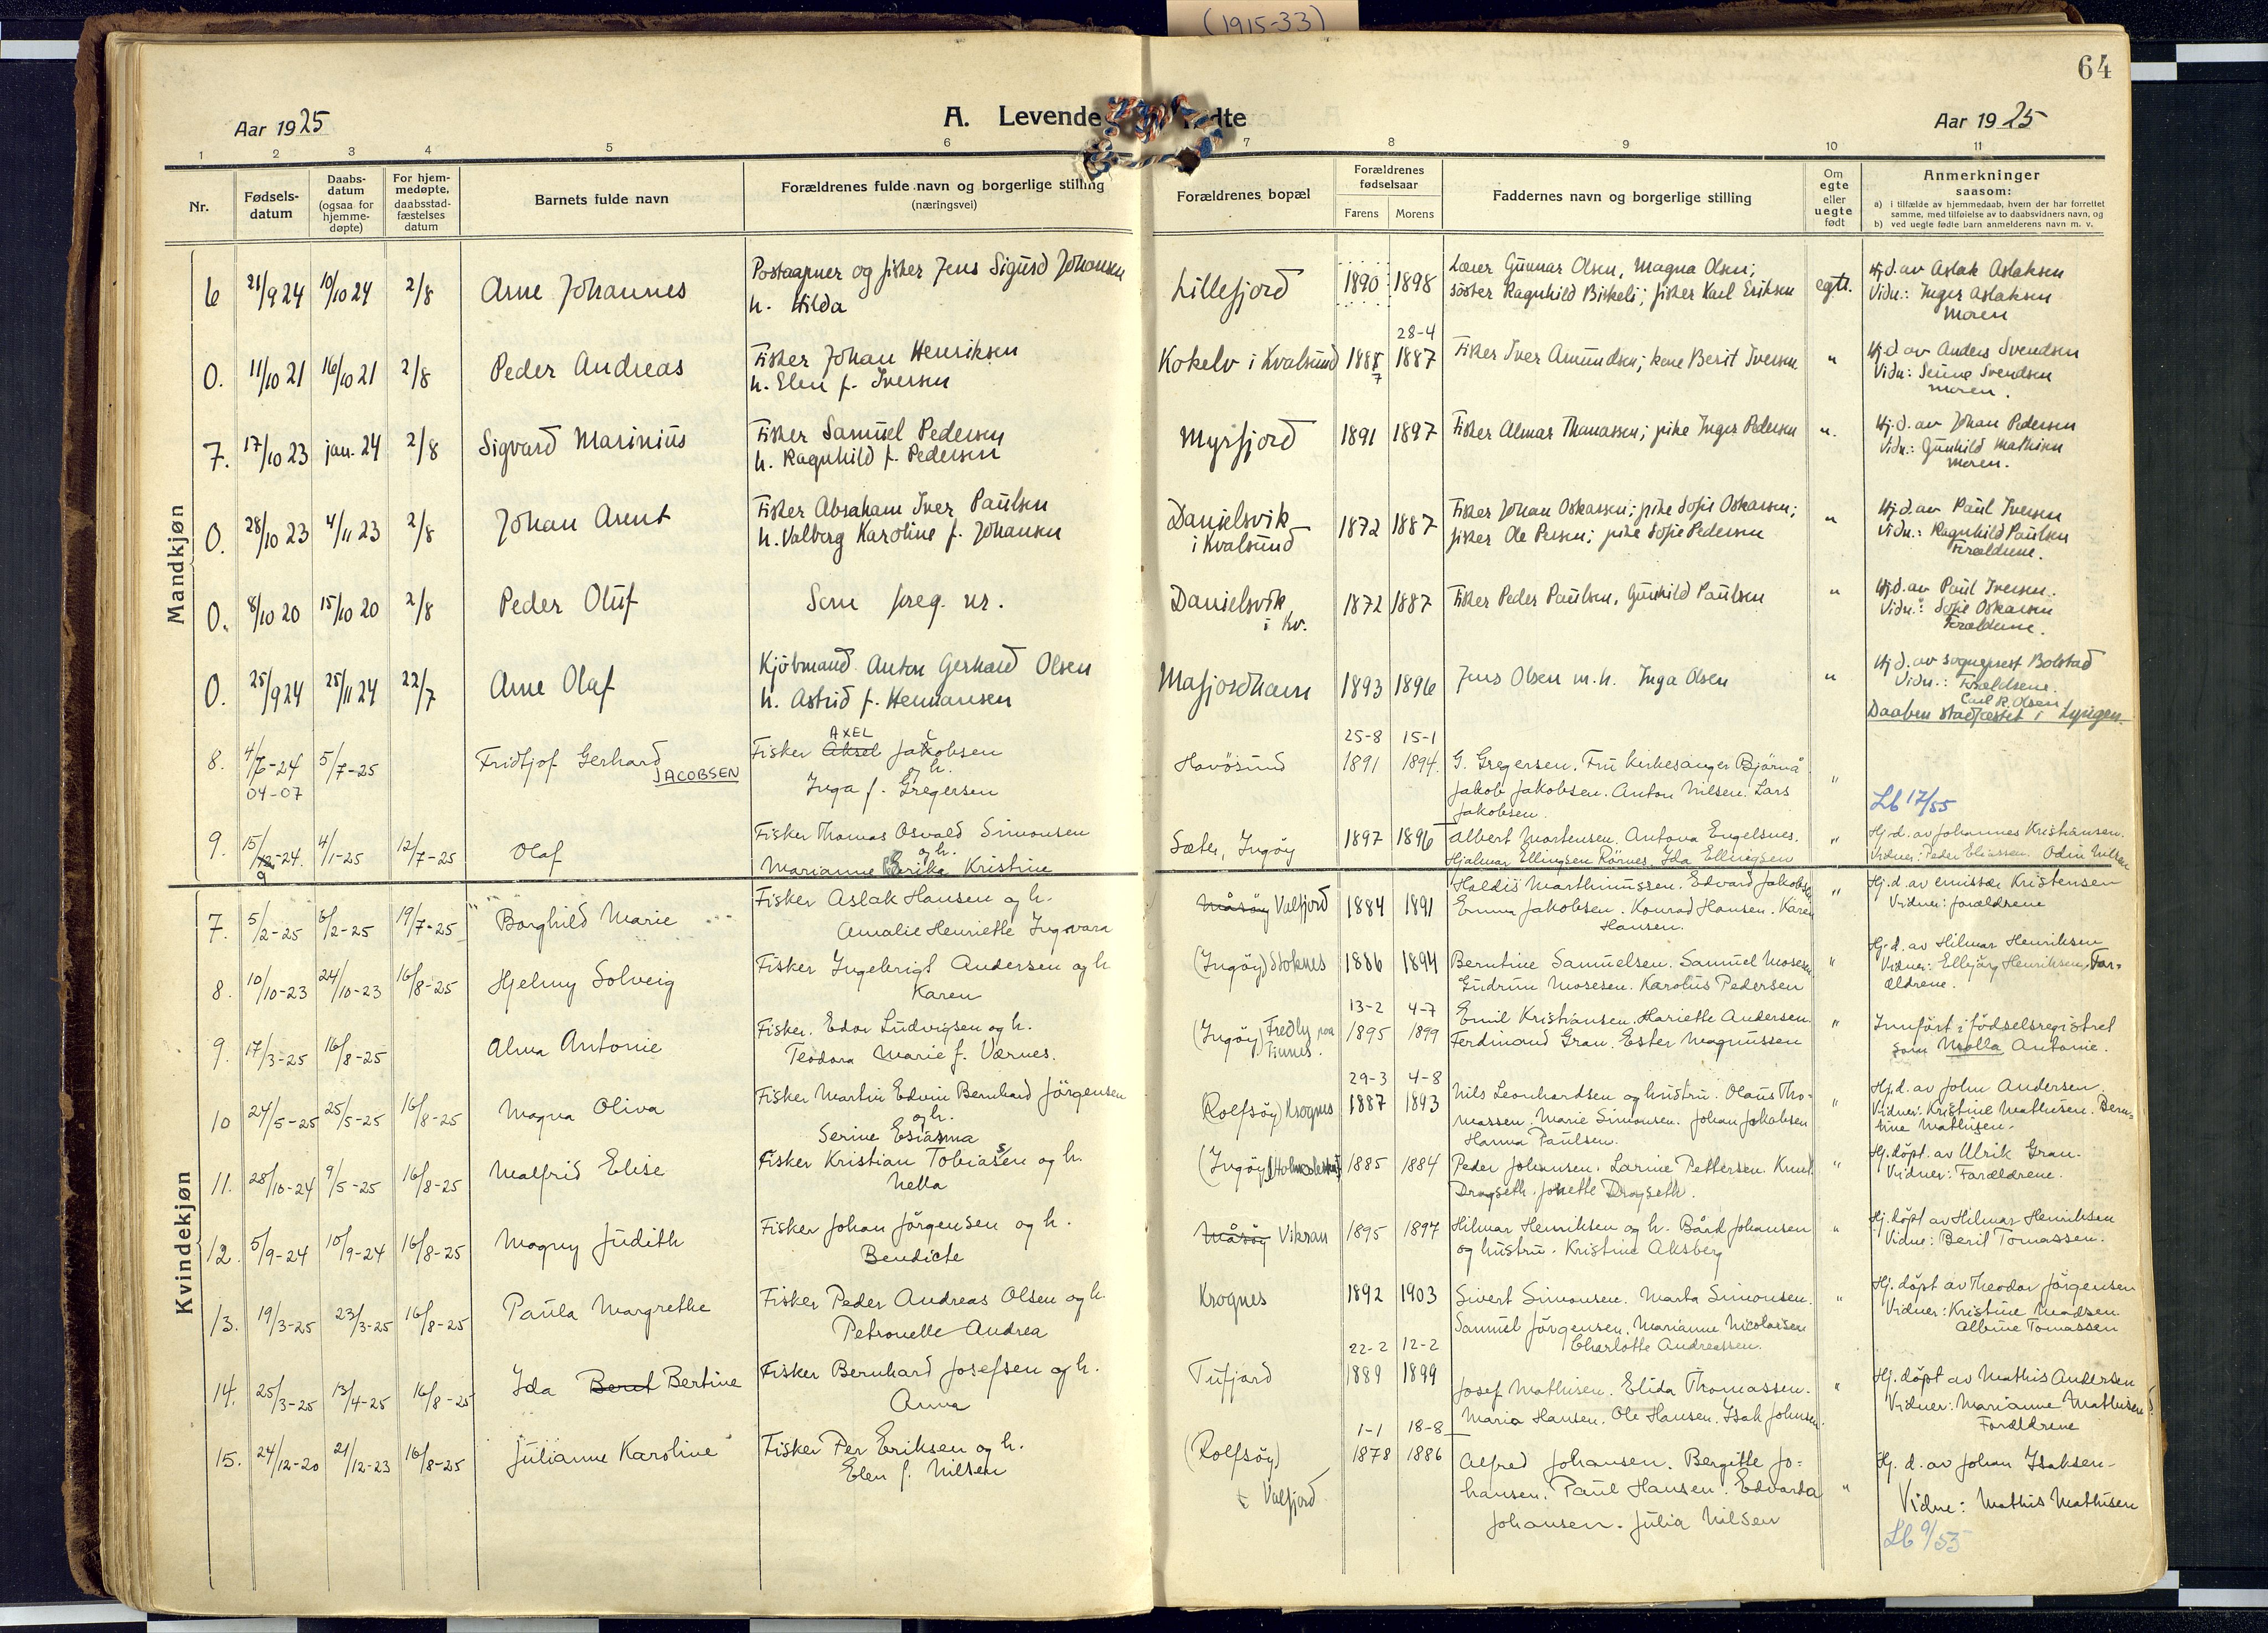 (1915-33)
64
Aar 1925
A. Levende fødte
Aar 1925
1 2 3 4 5 6 7 8 9 10 11
Nr.
Fødsels-
datum
Daabs-
datum
(ogsaa for
hjemme-
døpte)
For hjem-
medøpte,
daabsstad-
fæstelses
datum
Barnets fulde navn
Forældrenes fulde navn og borgerlige stilling
(næringsvei)
Forældrenes bopæl
Forældrenes
fødselsaar
Farens Morens
Faddernes navn og borgerlige stilling
Om
egte
eller
uegte
født
Anmerkninger
saasom:
a) i tilfælde av hjemmedaab, hvem der har forrettet
samme, med tilføielse av to daabsvidners navn, og
b) ved uegte fødte barn anmelderens navn m. v.
Mandkjøn
6 21/9 24 10/10 24 2/8 Arne Johannes
Postaapner og fisker Jens Sigurd Johansen
h. Hilda
Lillefjord 1890 1898
Lærer Gunnar Olsen, Magna Olsen;
söster Ragnhild Birkeli; fisker Karl Eriksen
egte.
Hj.d. av Aslak Aslaksen
Vidn.: Inger Aslaksen
Moren
O. 11/10 21 16/10 21 2/8 Peder Andreas
Fisker Johan Henriksen
h. Elen f. Iversen
Kokelv i Kvalsund 1888 7 28-4 1887
Fisker Iver Amundsen; kone Berit Iversen "
Hj.d. av Anders Svendsen
Vidn: Senne Svendsen
moren.
7. 17/10 23 jan. 24 2/8 Sigvard Marinius
Fisker Samuel Pedersen
h. Ragnhild f. Pedersen
Myrfjord 1891 1897
Fisker Almar Thomassen; pike Inger Pedersen "
Hj.d. av Johan Pedersen
Vidn.: Gunhild Mathisen
Moren.
O. 28/10 23 4/11 23 2/8 Johan Arent
Fisker Abraham Iver Paulsen
h. Valborg Karoline f. Johansen
Danielsvik
i Kvalsund
1872 1887
Fisker Johan Oskarsen; pike Sofie Oskarsen;
fisker Ole Persen; pike Sofie Pedersen "
Hj.d. av Paul Iversen
Vidn.: Ragnhild Paulsen
Forældrene.
O. 8/10 20 15/10 20 2/8 Peder Oluf
Som foreg. nr.
Danielsvik,
i Kv.
1872 1887
Fisker Peder Paulsen, Gunhild Paulsen "
Hj.d. av Paul Iversen.
Vidn.: Sofie Oskarsen
Forældrene.
O. 25/9 24 25/11 24 22/7 Arne Olaf
Kjöbmand Anton Gerhard Olsen
h. Astrid f. Hermansen
Mafjordhavn 1893 1896
Jens Olsen m.h. Inga Olsen "
Hj.d. av sogneprest Bolstad
Vidn.: Forældrene.
Carl R. Olsen
Daaben stadfæstet i Lyngen.
8. 4/7-24 5/7-25
04-07
Fridtjof Gerhard
JACOBSEN
AXEL
Fisker Aksel Jakobsen
og h.
Inga f. Gregersen
Havösund 25-8 1891 15-1 1894.
G. Gregersen. Fru Kirkesanger Bjørnå
Jakob Jakobsen. Anton Nilsen. Lars
Jakobsen. "
Lb 17/55
9. 15/9-24. 4/1-25 12/7-25 Olaf
Fisker Thomas Osvald Simonsen
og h.
Marianne Erika Kristine
Sæter, Ingöy 1897 1896
Albert Mortensen. Antona Engelsnes.
Hjalmar Ellingsen Rörnes, Ida Ellingsen "
Hj.d. av Johannes Kristiansen.
Vidner: Peder Eliassen. Odin Nilsen
Kvindekjøn
7. 5/2-25 6/2-25 19/7-25 Borghild Marie
Fisker Aslak Hansen og h.
Amalie Henriette Ingvara
Måsöy Valfjord 1884 1891
Haldis Marthinussen. Edvard Jakobsen
Emma Jakobsen. Konrad Hansen. Karen
Hansen. "
Hj.d. av emissær Kristensen
Vidner: forældrene
8. 10/10-23 24/10-23 16/8-25 Hjelmy Solveig
Fisker Ingebrigt Andersen og h
Karen
(Ingöy) Stoknes 1886 1894
Berntine Samuelsen. Samuel Mosesen
Gudrun Mosesen. Karolus Pedersen "
Hj.d. av Hilmar Henriksen
Vidner: Ellbjörg Henriksen, For-
ældrene.
9. 17/3-25 16/8-25 Alma Antonie
Fisker. Edor Ludvigsen og h.
Teodora Marie f. Værnes.
(Ingöy) Fredly paa
Finnes.
13-2 1895 4-7 1899
Emil Kristiansen. Hariette Andersen.
Ferdinand Gran. Ester Magnussen "
Innfört i födselsregistret
som Molla Antonie.
10 24/5-25 25/5-25 16/8-25 Magna Oliva
Fisker Martin Edvin Bernhard Jörgensen
og h.
Serine Esiasma
(Rolfsöy) Krognes 29-3 1887 4-8 1893
Nils Leonhardsen og hustru. Olaus Tho-
massen. Marie Simonsen. Johan Jakobsen
Hanna Paulsen. "
Hj.d. av John Andersen.
Vidner: Kristine Mathisen. Bern-
tine Mathisen.
11. 28/10-24 9/5-25 16/8-25 Malfrid Elise
Fisker Kristian Tobiassen og h.
Nella
(Ingöy) 1885 1884
Peder Johansen. Larine Pettersen. Knut
Dragseth. Jonette Dragseth. "
Hj. döpt. av Ulrik Gran.
Vidner: Forældrene.
12. 5/9-24 10/9-24 16/8-25 Magny Judith
Fisker Johan Jörgensen og h.
Bendicte
Måsöy Vikran 1895 1897
Hilmar Henriksen og h. Bård Johansen
og hustru. Kristine Aksberg "
Hj. döpt av Hilmar Henriksen
Vidne: Beril Tomassen.
13. 19/3-25 23/3-25 16/8-25 Paula Margrethe
Fisker Peder Andreas Olsen og h.
Petronelle Andrea
Krognes 1892 1903
Sivert Simonsen. Marta Simonsen.
Samuel Jörgensen. Marianne Nicolaisen
Charlotte Andreassen. "
Hj. döpt av Theodor Jörgensen
Vidner: Kristine Madsen
Albine Tomassen
14. 25/3-25 13/4-25 16/8-25 Ida Berut Bertine
Fisker Bernhard Josefsen og h.
Anna
Tufjord 22-2 1889 12-2 1899
Josef Mathisen. Elida Thomassen.
Maria Hansen. Ole Hansen. Isak Johnsen. "
Hj. döpt av Mathis Andersen
Vidner: Marianne Mathisen
Forældrene
15. 24/12-20 21/12-23 16/8-25 Julianne Karoline
Fisker Per Eriksen og h.
Elen f. Nilsen
(Rolfsöy)
Valfjord
1-1 1878 18-8 1886
Alfred Johansen. Bergitte Jo-
hansen. Paul Hansen. Edvarda
Johansen. Julia Nilsen "
Hj. d. av Johan Isaksen
Vidne: Mathis Mathisen
Lb 9/53